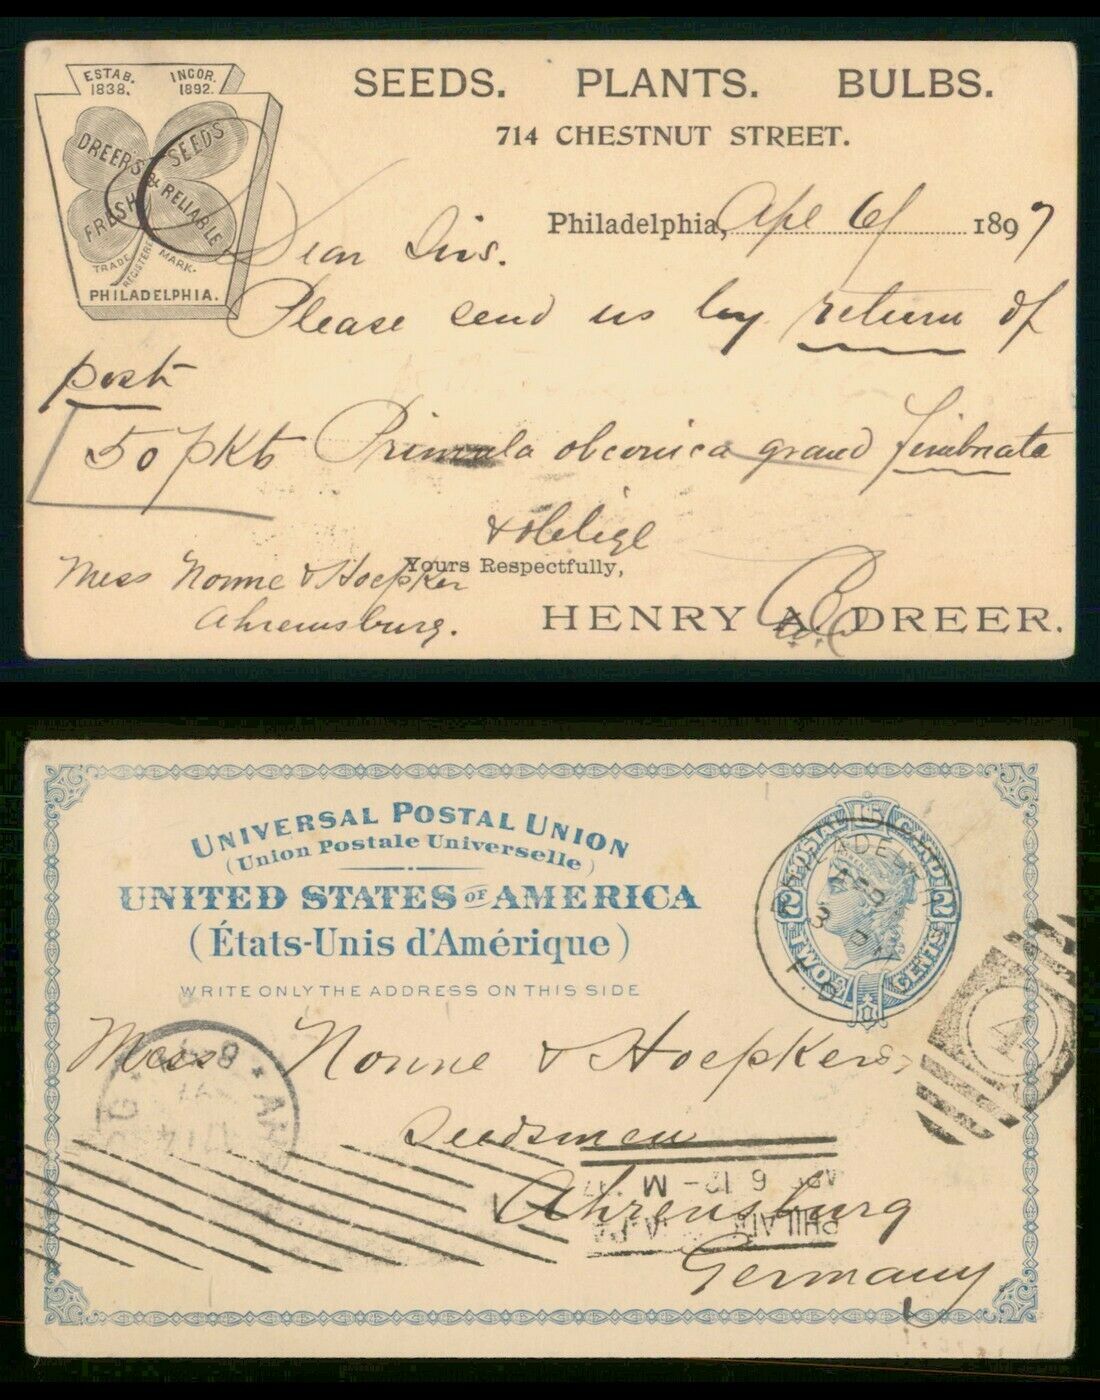 ESTAB. 1838. INCOR. 1892.
DREER'S SEEDS
FRESH & RELIABLE
TRADE REGISTERED MARK.
PHILADELPHIA.
SEEDS. PLANTS. BULBS.
714 CHESTNUT STREET.
Philadelphia, Apl 6th 1897
Dear Sirs.
Please send us by return of
post
50 pkts Primula obconica grand fimbriata
& oblige
Yours Respectfully,
Mess Nonne & Hoepker
Ahrensburg.
HENRY A. DREER.
UNIVERSAL POSTAL UNION
(Union Postale Universelle)
UNITED STATES OF AMERICA
(États-Unis d'Amérique)
WRITE ONLY THE ADDRESS ON THIS SIDE
POSTAL CARD
2 TWO CENTS 2
PHILADELPHIA
4
Mess Nonne & Hoepker,
Seedsmen
Ahrensburg
Germany
APR 6 12-M 97
PHILA PA